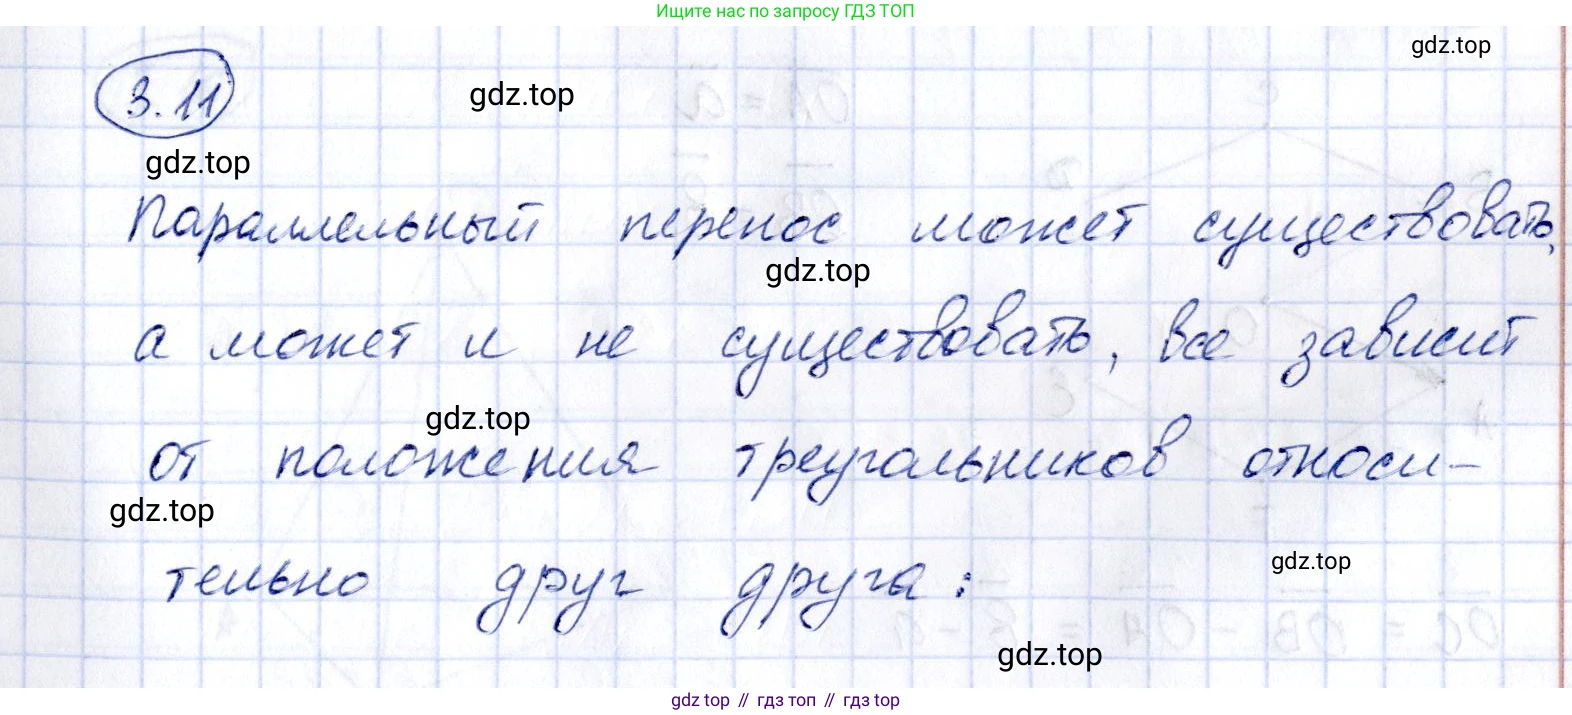 Ищите нас по запросу ГДЗ ТОП
gdz.top
3.11
gdz.top
gdz.top
Параллельный перенос может существовать,
gdz.top
а может и не существовать, все зависит
gdz.top
от положения треугольников относи-
gdz.top
gdz.top
тельно друг друга:
gdz.top
gdz.top // гдз топ // гдз top